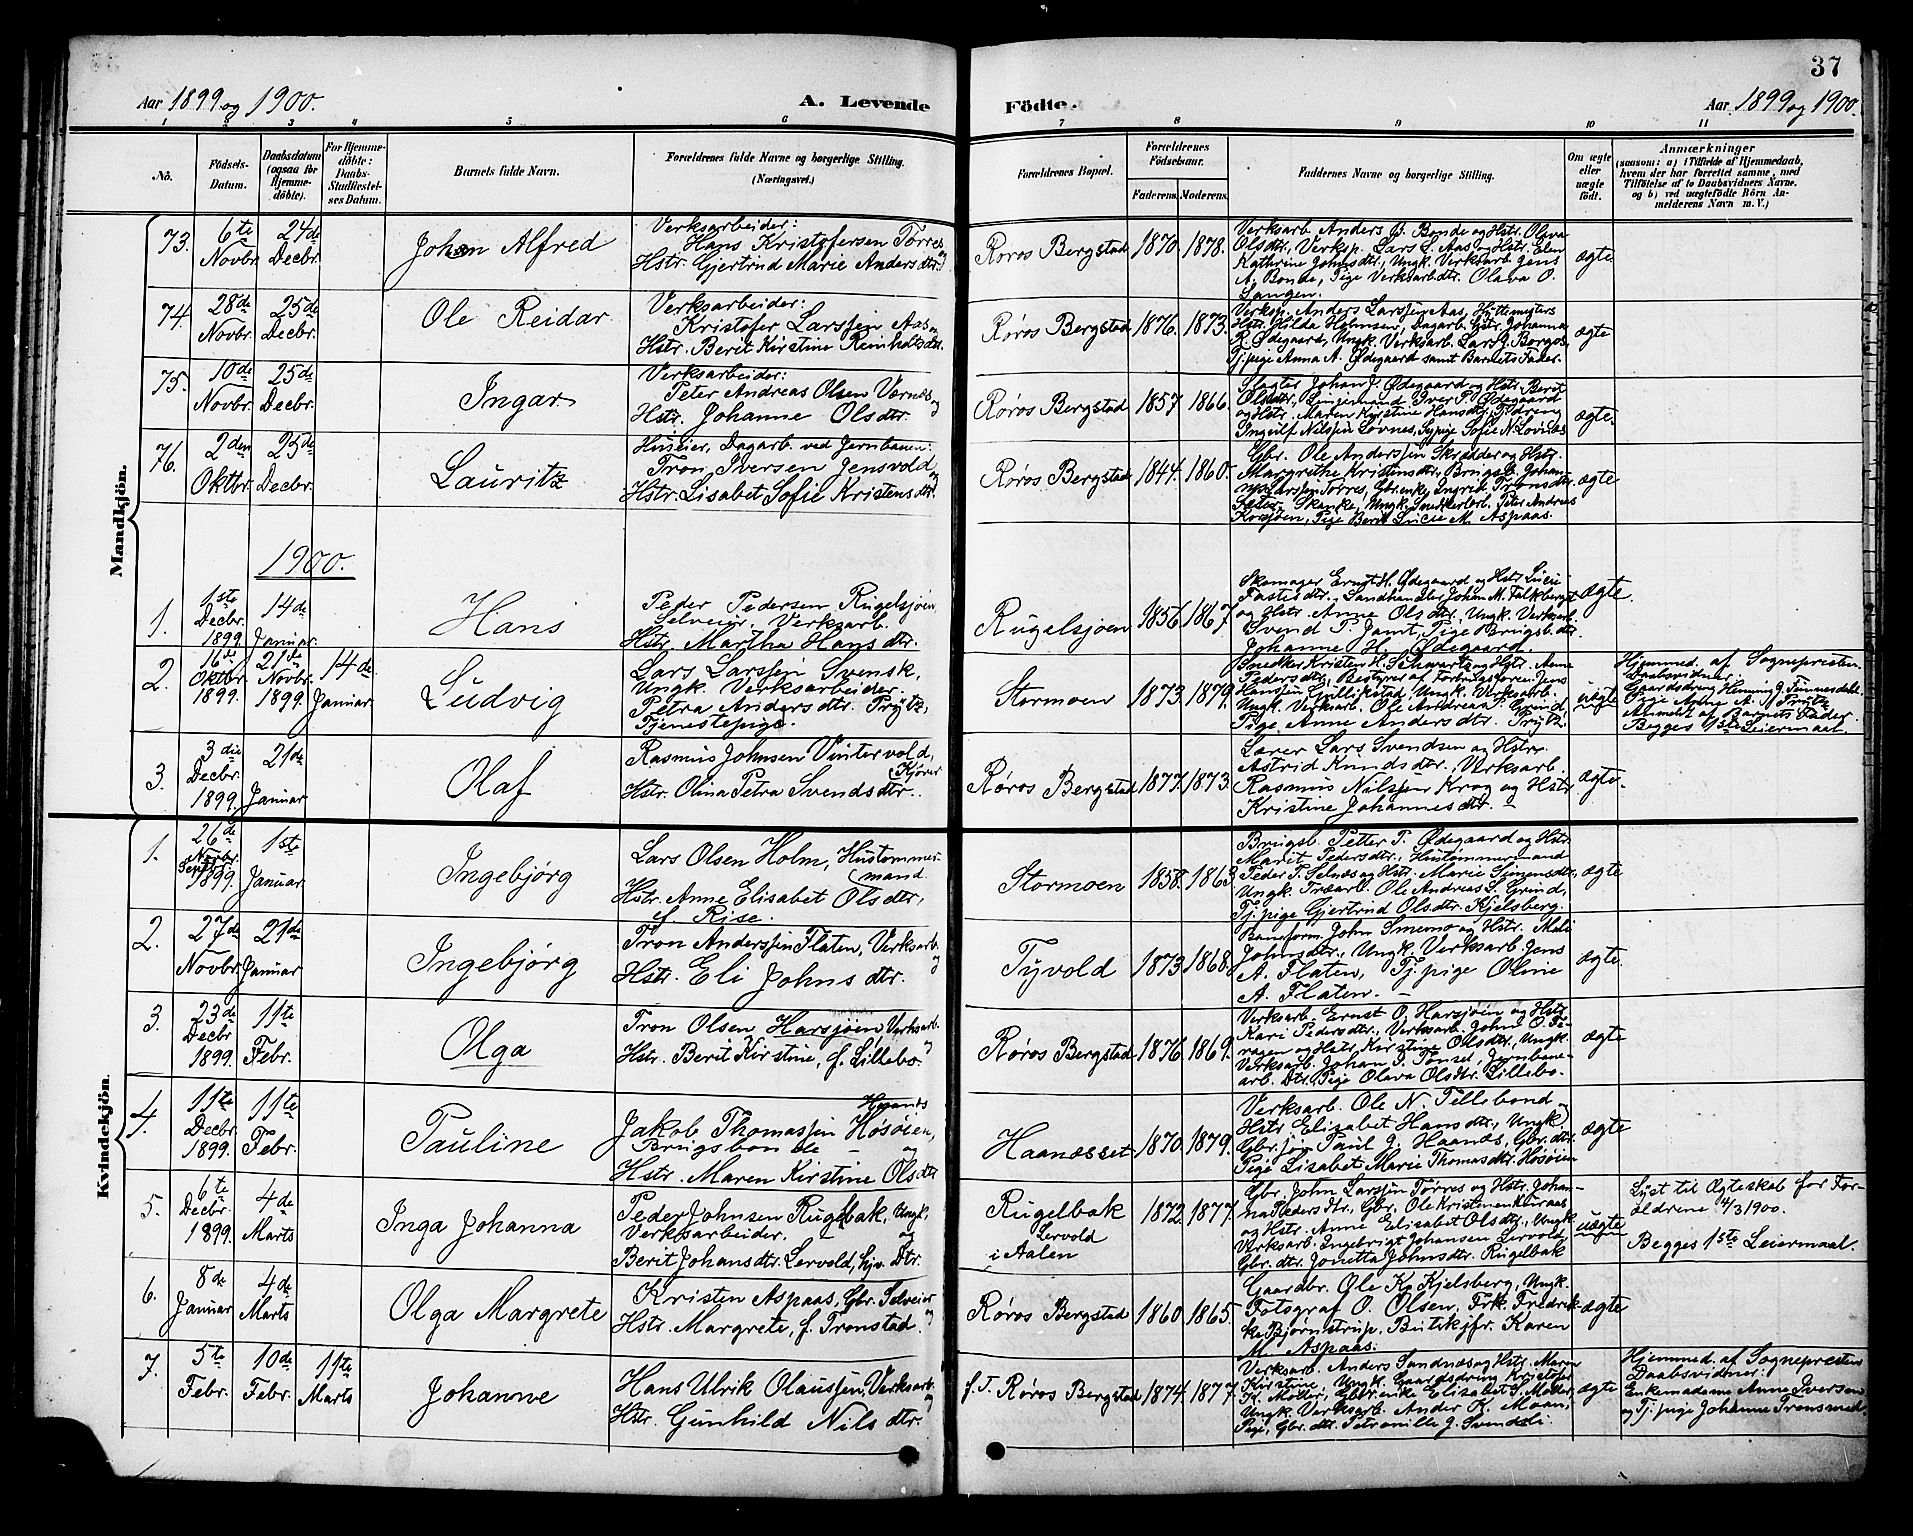 37
Aar 1899 og 1900.
A. Levende
Födte.
Aar 1899 og 1900.
1 2 3 4 5 6 7 8 9 10 11
No.
Födsels-
Datum.
Daabsdatum
(ogsaa for
Hjemme-
döbte).
For Hjemme-
döbte:
Daabs-
Stadfæstel-
ses Datum.
Barnets fulde Navn.
Forældrenes fulde Navne og borgerlige Stilling.
(Næringsvei.)
Forældrenes Bopæl.
Forældrenes
Födselsaar.
Faderens. Moderens.
Faddernes Navne og borgerlige Stilling.
Om ægte
eller
uægte
födt.
Anmærkninger
(saasom: a) i Tilfælde af Hjemmedaab,
hvem der har forrettet samme, med
Tilföielse af to Daabsvidners Navne,
og b) ved uægtefödte Börn An-
melderens Navn m. V.)
Mandkjön.
73.
6te
Novbr.
24de
Decbr.
Johan Alfred
Verksarbeider:
Hans Kristofersen Torres og
Hstr. Gjertrud Marie Andersdtr.
Røros Bergstad
1870. 1878.
Verksarb. Anders B. Bonde og Hstr. Olava
Olsdtr., Verksp. Lars L. Aas og Hstr. Elen
Kathrine Johnsdtr., Ungk. Verksarb. Jens
A. Bonde, Pige Verksarbdtr. Olava O.
Langen.
ægte
74.
28de
Novbr.
25de
Decbr.
Ole Reidar
Verksarbeider:
Kristofer Larssen Aas og
Hstr. Berit Kirstine Reinholtsdtr.
Røros Bergstad
1876. 1873.
Verksp. Anders Larssen Aas, Hyttemesters
Hstr. Hilda Holmsen, Dagarb. Hstr. Johanna
R. Ødegaard, Ungk. Verksarb. Lars G. Borgos
Tj. pige Anna A. Ødegaard samt Barnets Fader.
ægte
75.
10de
Novbr.
25de
Decbr.
Ingar
Verksarbeider:
Peter Andreas Olsen Værnes og
Hstr. Johanne Olsdtr.
Røros Bergstad
1857 1866.
Slagter Johan J. Ødegaard og Hstr. Berit
Olsdtr., Iver P. Ødegaard
og Hstr. Maren Kirstine Hansdtr., Tj. dreng
Ingvilf Nilssen Lovnes, Sypige Sofie N. Lovnes
ægte.
76.
2den
Oktbr.
25de
Decbr.
Lauritz
Huseier, Dagarb. ved Jernbanen:
Tron Iversen Jensvold og
Hstr. Lisabet Sofie Kristensdtr.
Røros Bergstad
1844. 1860.
Gbr. Ole Anderssen Skredder og Hstr.
Margrethe Kristensdtr., Brugsb. Johan-
Larssen Torres, Gbr. enke Ingrid Tronsdtr.
Skanke, Ungk. Snedkerlærl. Peter Andreas
Korsjøen, Pige Berit Lucie M. Aspaas.
ægte
1900.
1.
1ste
Decbr.
1899.
14de
Januar.
Hans
Peder Pedersen Rugelsjøen,
Selveier, Verksarb.
Hstr. Martha Hansdtr.
Rugelsjøen
1856. 1867.
Skomager Ernst H. Ødegaard og Hstr. Lucie
Fastesdtr., Landhandler Johan M. Falkberget
og Hstr. Anne Olsdtr., Ungk. Verksarb.
Svend P. Jamt, Pige Brugsb. dtr.
Johanne H. Ødegaard.
ægte.
2.
16de
Oktbr.
1899.
21de
Novbr.
1899.
14de
Januar.
Ludvig
Lars Larssen Svensk,
Ungk. Verksarbeider.
Petra Andersdtr. Trytz,
Tjenestepige.
Stormoen
1873. 1879.
Snedker Kristen H. Schwartz og Hstr. Anne
Pedersdtr., Bestyrer af Forbrugsforen. Jens
Hanssen Grillikstad, Ungk. Verksarb.
Ungk. Verksarb. Ole Andreas P. Grind,
Pige Anne Andersdtr. Trytz.
uægte
Hjemmed. af Sognepresten.
Daabsvidner:
Gaardsdreng Henning J. Finnesdalet
Pige Anne A. Trytz
Anmeldt af Barnets Fader.
Begges 1ste Leiermaal.
3.
3die
Decbr.
1899.
21de
Januar
Olaf
Rasmus Johnsen Vintervold,
(Kjører
Hstr. Olina Petra Svendsdtr.
Røros Bergstad
1877. 1873.
Lærer Lars Svendsen og Hstr.
Astrid Knudsdtr., Verksarb.
Rasmus Nilssen Krog og Hstr.
Kristine Johannesdtr. —
ægte.
Kvindekjön.
1.
26de
Novbr.
Septbr.
1899.
1ste
Januar
Ingebjørg
Lars Olsen Holm, Hustømmer-
(mand.
Hstr. Anne Elisabet Olsdtr,
f. Rise.
Stormoen
1858. 1863.
Brugsb. Petter T. Ødegaard og Hstr.
Marit Pedersdtr., Hustømmermand
Peder T. Selnes og Hstr. Marie Simensdtr,
Ungk. Træarb. Ole Andreas L. Grind,
Tj. pige Gjertrud Olsdtr. Kjelsberg.
ægte
2.
27de
Novbr.
21de
Januar
Ingebjørg
Tron Anderssen Flaten, Verksarb.
og
Hstr. Eli Johnsdtr.
Tyvold
1873. 1868.
Baneform. John Smemo og Hstr. Meli
Johnsdtr., Ungk. Verksarb. Jens
A. Flaten, Tj. pige Oline
A. Flaten. —
ægte.
3.
23de
Decbr.
1899.
11te
Febr.
Olga
Tron Olsen Harsjøen, Verksarb.
og
Hstr. Berit Kirstine, f. Lillebo.
Røros Bergstad
1876. 1869.
Verksarb. Ernst O. Harsjøen og Hstr.
Kari Pedersdtr., Verksarb. John O. Fe-
ragen og Hstr. Kirstine Olsdtr., Ungk.
Verksarb. Johan P. Tønset, Jernbane-
arb. Dtr. Pige Olava Olsdtr. Lillebo.
ægte
4.
11te
Decbr.
1899.
11te
Febr.
Pauline
Haanes
Jakob Thomassen Høsøien,
Brugsbonde — og
Hstr. Maren Kirstine Olsdtr
Haanesset
1870. 1879.
Verksarb. Ole N. Tillebond og
Hstr. Elisabet Hansdtr., Ungk.
Gbr. søn Paul J. Haanæs, Gbr. dtr.
Pige Lisabet Marie Thomasdtr. Høsøien
ægte
5.
6te
Decbr.
1899.
4de
Marts
Inga Johanna
Peder Johnsen Rugelbak, Ungk,
Verksarbeider, — og
Berit Johansdtr. Lervold, hjv. Dtr.
Rugelbak
Lervold
i Aalen
1872. 1877.
Gbr. John Larssen Torres og Hstr. Johan-
na Pedersdtr., Gbr. Ole Kristensen Kuraas
og Hstr. Anne Elisabet Olsdtr., Ungk.
Verksarb. Ingebrigt Johansen Lervold,
Gbr. dtr. Jonetta Johnsdtr. Rugelbak
uægte
Lyst til Ægteskab for For-
ældrene 14/3 1900.
Begges 1ste Leiermaal.
6.
8de
Januar
4de
Marts
Olga Margrete
Kristen Aspaas, Gbr. Selveier
og
Hstr. Margrete, f. Tronstad.
Røros Bergstad
1860. 1865.
Gaardbr. Ole K. Kjelsberg, Ungk.
Fotograf O. Olsen, Frk. Fredrik-
ke Bjørnstrup, Butikjfr. Karen
M. Aspaas.
ægte
7.
5te
Febr.
10de
Febr.
11te
Marts
Johanne
Hans Ulrik Olaussen, Verksarb.
og
Hstr. Gunhild Nilsdtr.
f. T. Røros Bergstad
1874. 1877.
Verksarb. Anders Sandnæs og Hstr. Maren
Kirstine, Ungk. Gaardsdreng Kristofer
K. Moder, Gbr. enke Elisabet P. Moder,
Ungk. Verksarb. Ander K. Moan,
Pige, Gbr. dtr. Petronille J. Svendsli.
ægte
Hjemmed. af Sognepresten
Daabsvidner:
Enkemadame Anne Iversen
og Tj. pige Johanne Tronsmed.